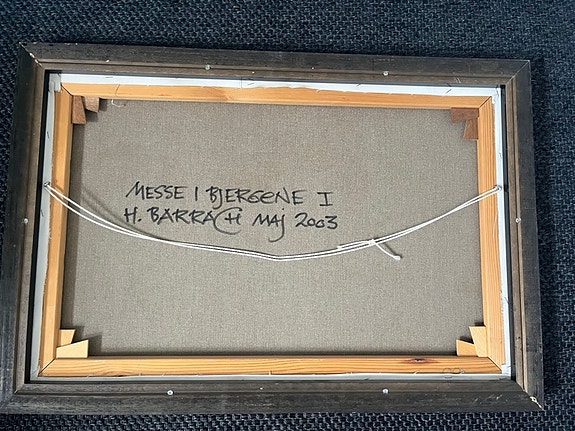 MESSE I BJERGENE I
H. BARRACH MAJ 2003